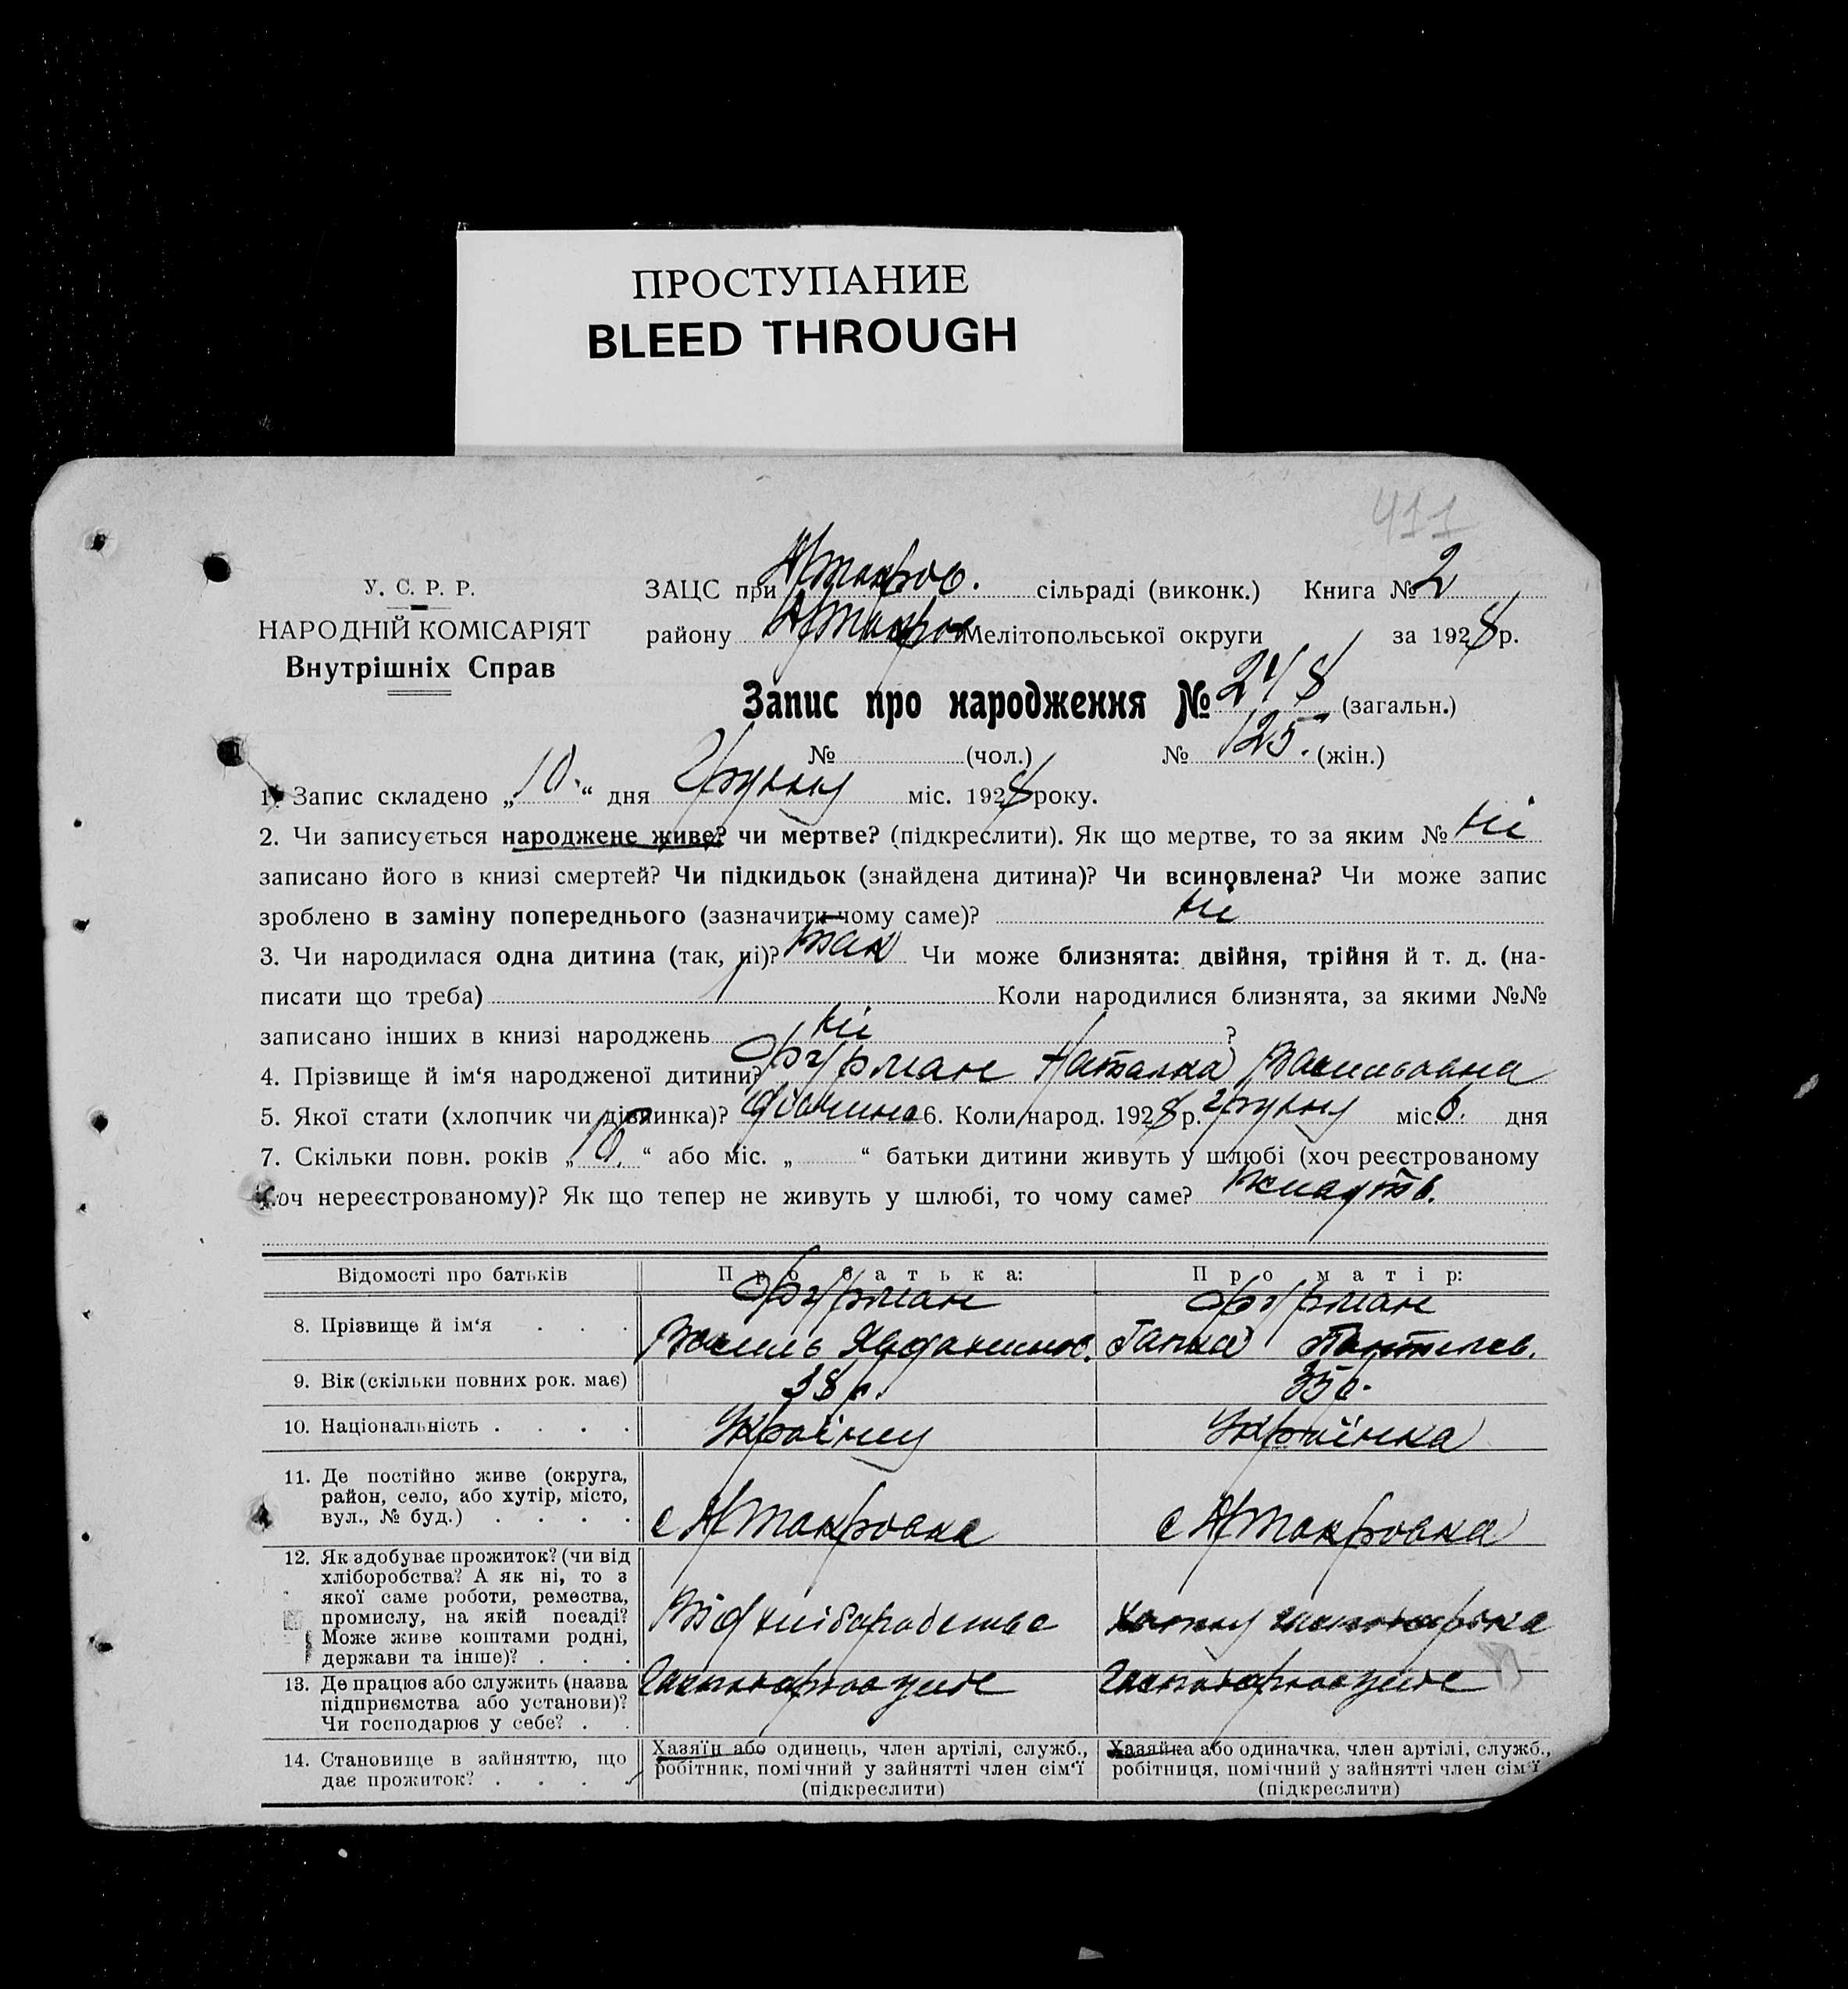 ПРОСТУПАНИЕ
BLEED THROUGH
411
У. С. Р. Р.
НАРОДНІЙ КОМІСАРІЯТ
Внутрішніх Справ
ЗАЦС при сільраді (виконк.) Книга № 2
району Мелітопольської округи за 1928 р.
Запис про народження № 248 (загальн.)
№ (чол.) № 125. (жін.)
1. Запис складено „10.“ дня Грудню міс. 1928 року.
2. Чи записується народжене живе? чи мертве? (підкреслити). Як що мертве, то за яким № ні
записано його в книзі смертей? Чи підкидьок (знайдена дитина)? Чи всиновлена? Чи може запис
зроблено в заміну попереднього (зазначити чому саме)? ні
3. Чи народилася одна дитина (так, ні)? так Чи може близнята: двійня, трійня й т. д. (на-
писати що треба) Коли народилися близнята, за якими №№
записано інших в книзі народжень ні ?
4. Прізвище й ім‘я народженої дитини? Фурман Наталка Васильовна
5. Якої стати (хлопчик чи дівчинка)? дівчина 6. Коли народ. 1928 р. грудню міс. 6. дня
7. Скільки повн. років „10.“ або міс. „ “ батьки дитини живуть у шлюбі (хоч реєстрованому
хоч нереєстрованому)? Як що тепер не живуть у шлюбі, то чому саме? живуть.
Відомості про батьків Про батька: Про матір:
8. Прізвище й ім‘я . . . Фурман Фурман
Василь Ганна
9. Вік (скільки повних рок. має) 38 р. 35 р.
10. Національність . . . . Українец Українка
11. Де постійно живе (округа,
район, село, або хутір, місто,
вул., № буд.) . . . .
12. Як здобуває прожиток? (чи від
хліборобства? А як ні, то з
якої саме роботи, ремества,
промислу, на якій посаді?
Може живе коштами родні,
держави та інше)? . . .
Від хліборобства
13. Де працює або служить (назва
підприємства або установи)?
Чи господарює у себе? . .
14. Становище в зайняттю, що
дає прожиток? . . . .
Хазяїн або одинець, член артілі, служб.,
робітник, помічний у зайнятті член сім‘ї
(підкреслити)
Хазяйка або одиначка, член артілі, служб.,
робітниця, помічний у зайнятті член сім‘ї
(підкреслити)